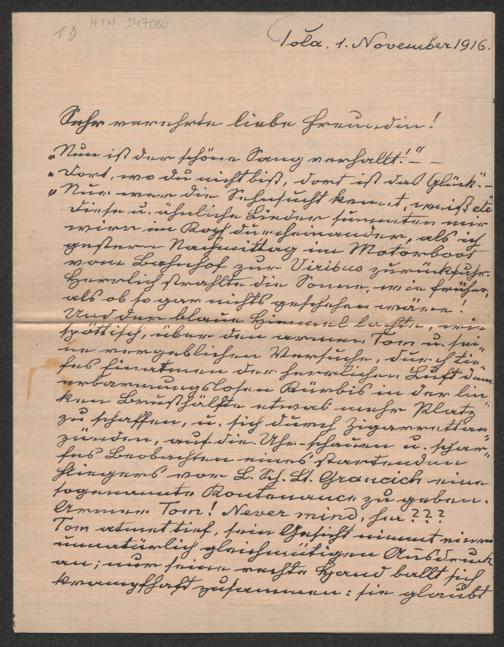 10
H.I.N. 247080
Pola. 1. November 1916.
Sehr verehrte liebe Freundin!
„Nun ist der schöne Sang verhallt!" –
„Dort, wo du nicht bist, dort ist das Glück." –
„Nur wer die Sehnsucht kennt, weiß etc
Diese u. ähnliche Lieder summten mir
wirr im Kopf durcheinander, als ich
gestern Nachmittag im Motorboot
vom Bahnhof zur Viribus zurückfuhr.
Herrlich strahlte die Sonne, wie früher,
als ob so gar nichts geschehen wäre!
Und der blaue Himmel lachte, wie
spöttisch, über den armen Tom u. sei-
ne vergeblichen Versuche, durch tie-
fes Einatmen der herrlichen Luft dem
erbarmungslosen Kürbis in der lin-
ken Brusthälfte etwas mehr Platz
zu schaffen, u. sich durch Zigaretten-
zünden, auf die Uhr schauen u. schar-
fes Beobachten eines startenden
Fliegers vor L. Sch. Lt. Grancich eine
sogenannte Kontenance zu geben.
Armer Tom! Never mind, her???
Tom atmet tief, sein Gesicht nimmt einen
unnatürlich gleichmütigen Ausdruck
an; nur seine rechte Hand ballt sich
krampfhaft zusammen: sie glaubt